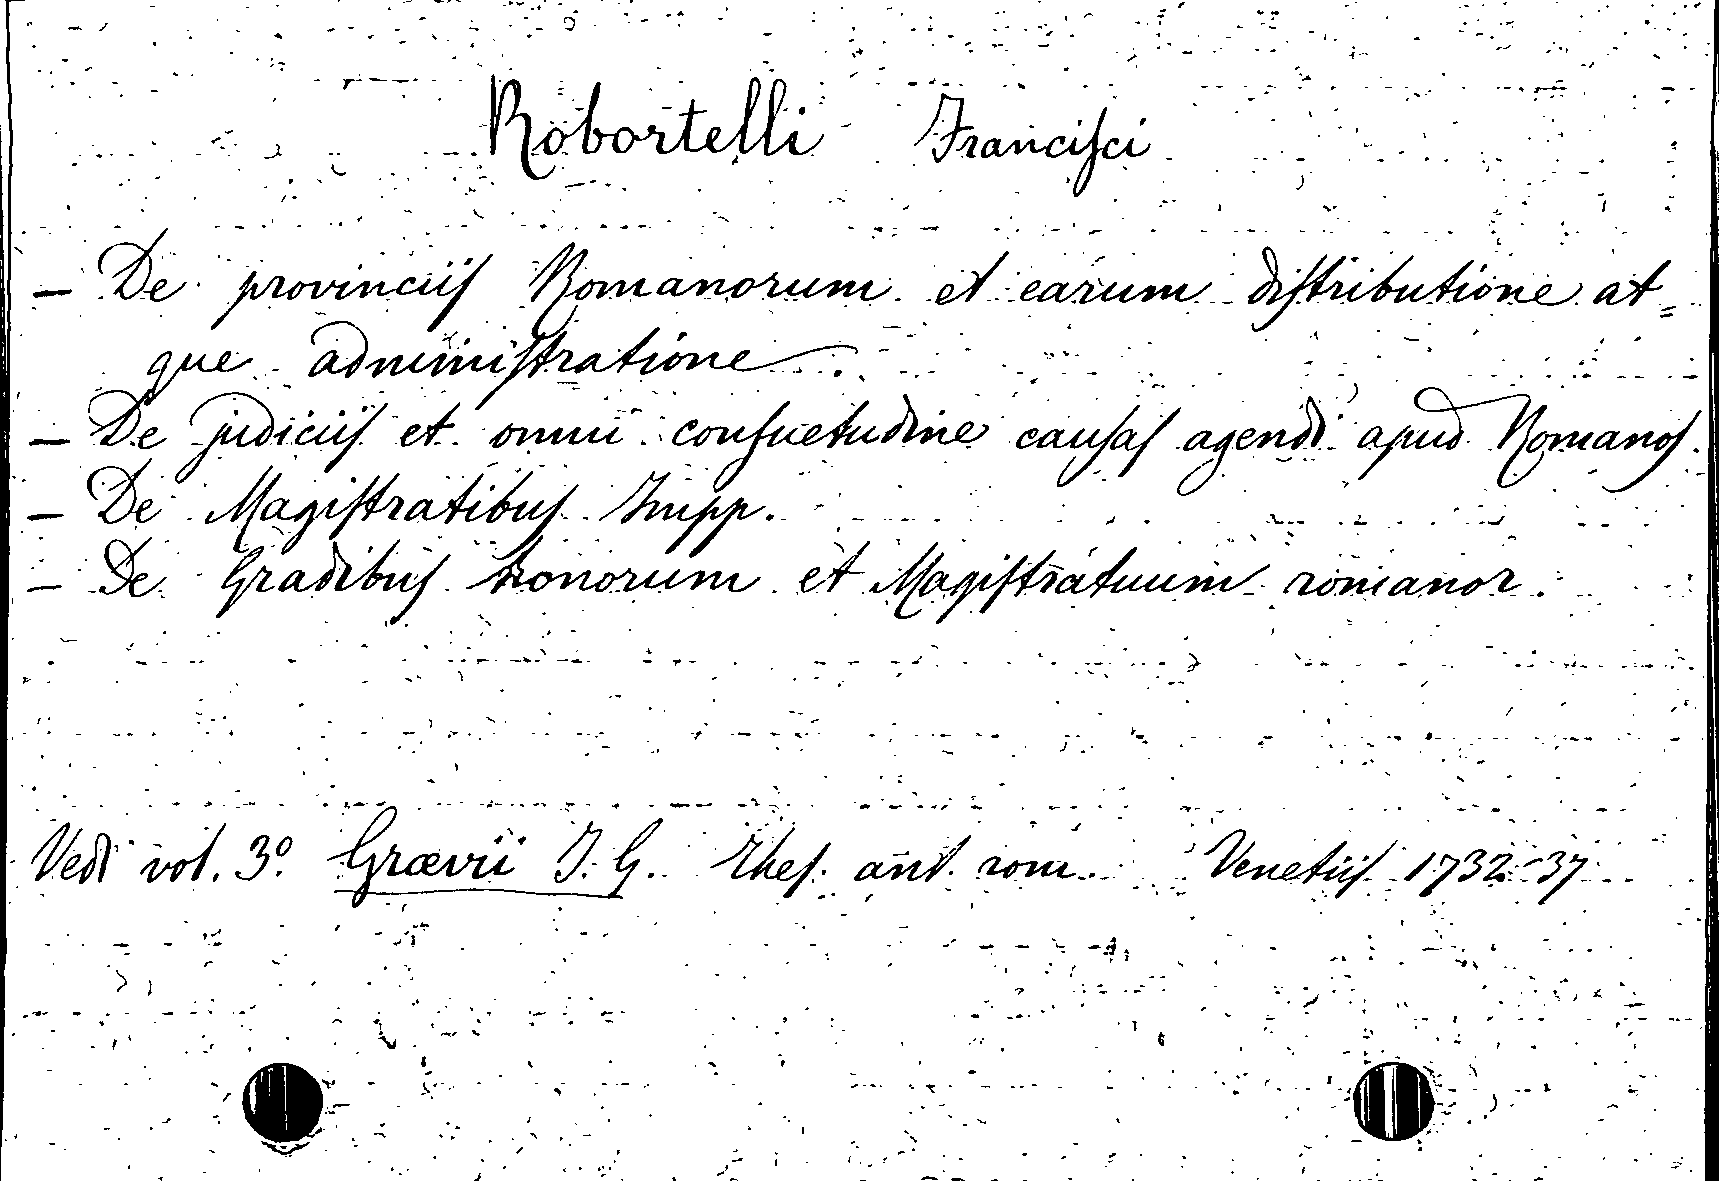 Robortelli Francisci
– De provinciis Romanorum et earum distributione at=
que administratione
– De judiciis et omni consuetudine causas agendi apud Romanos.
– De Magistratibus Impp.
– De Gradibus honorum et Magistratuum romanor.
Vedi vol. 3º Grævii J. G. Thes. ant. rom. Venetiis 1732-37